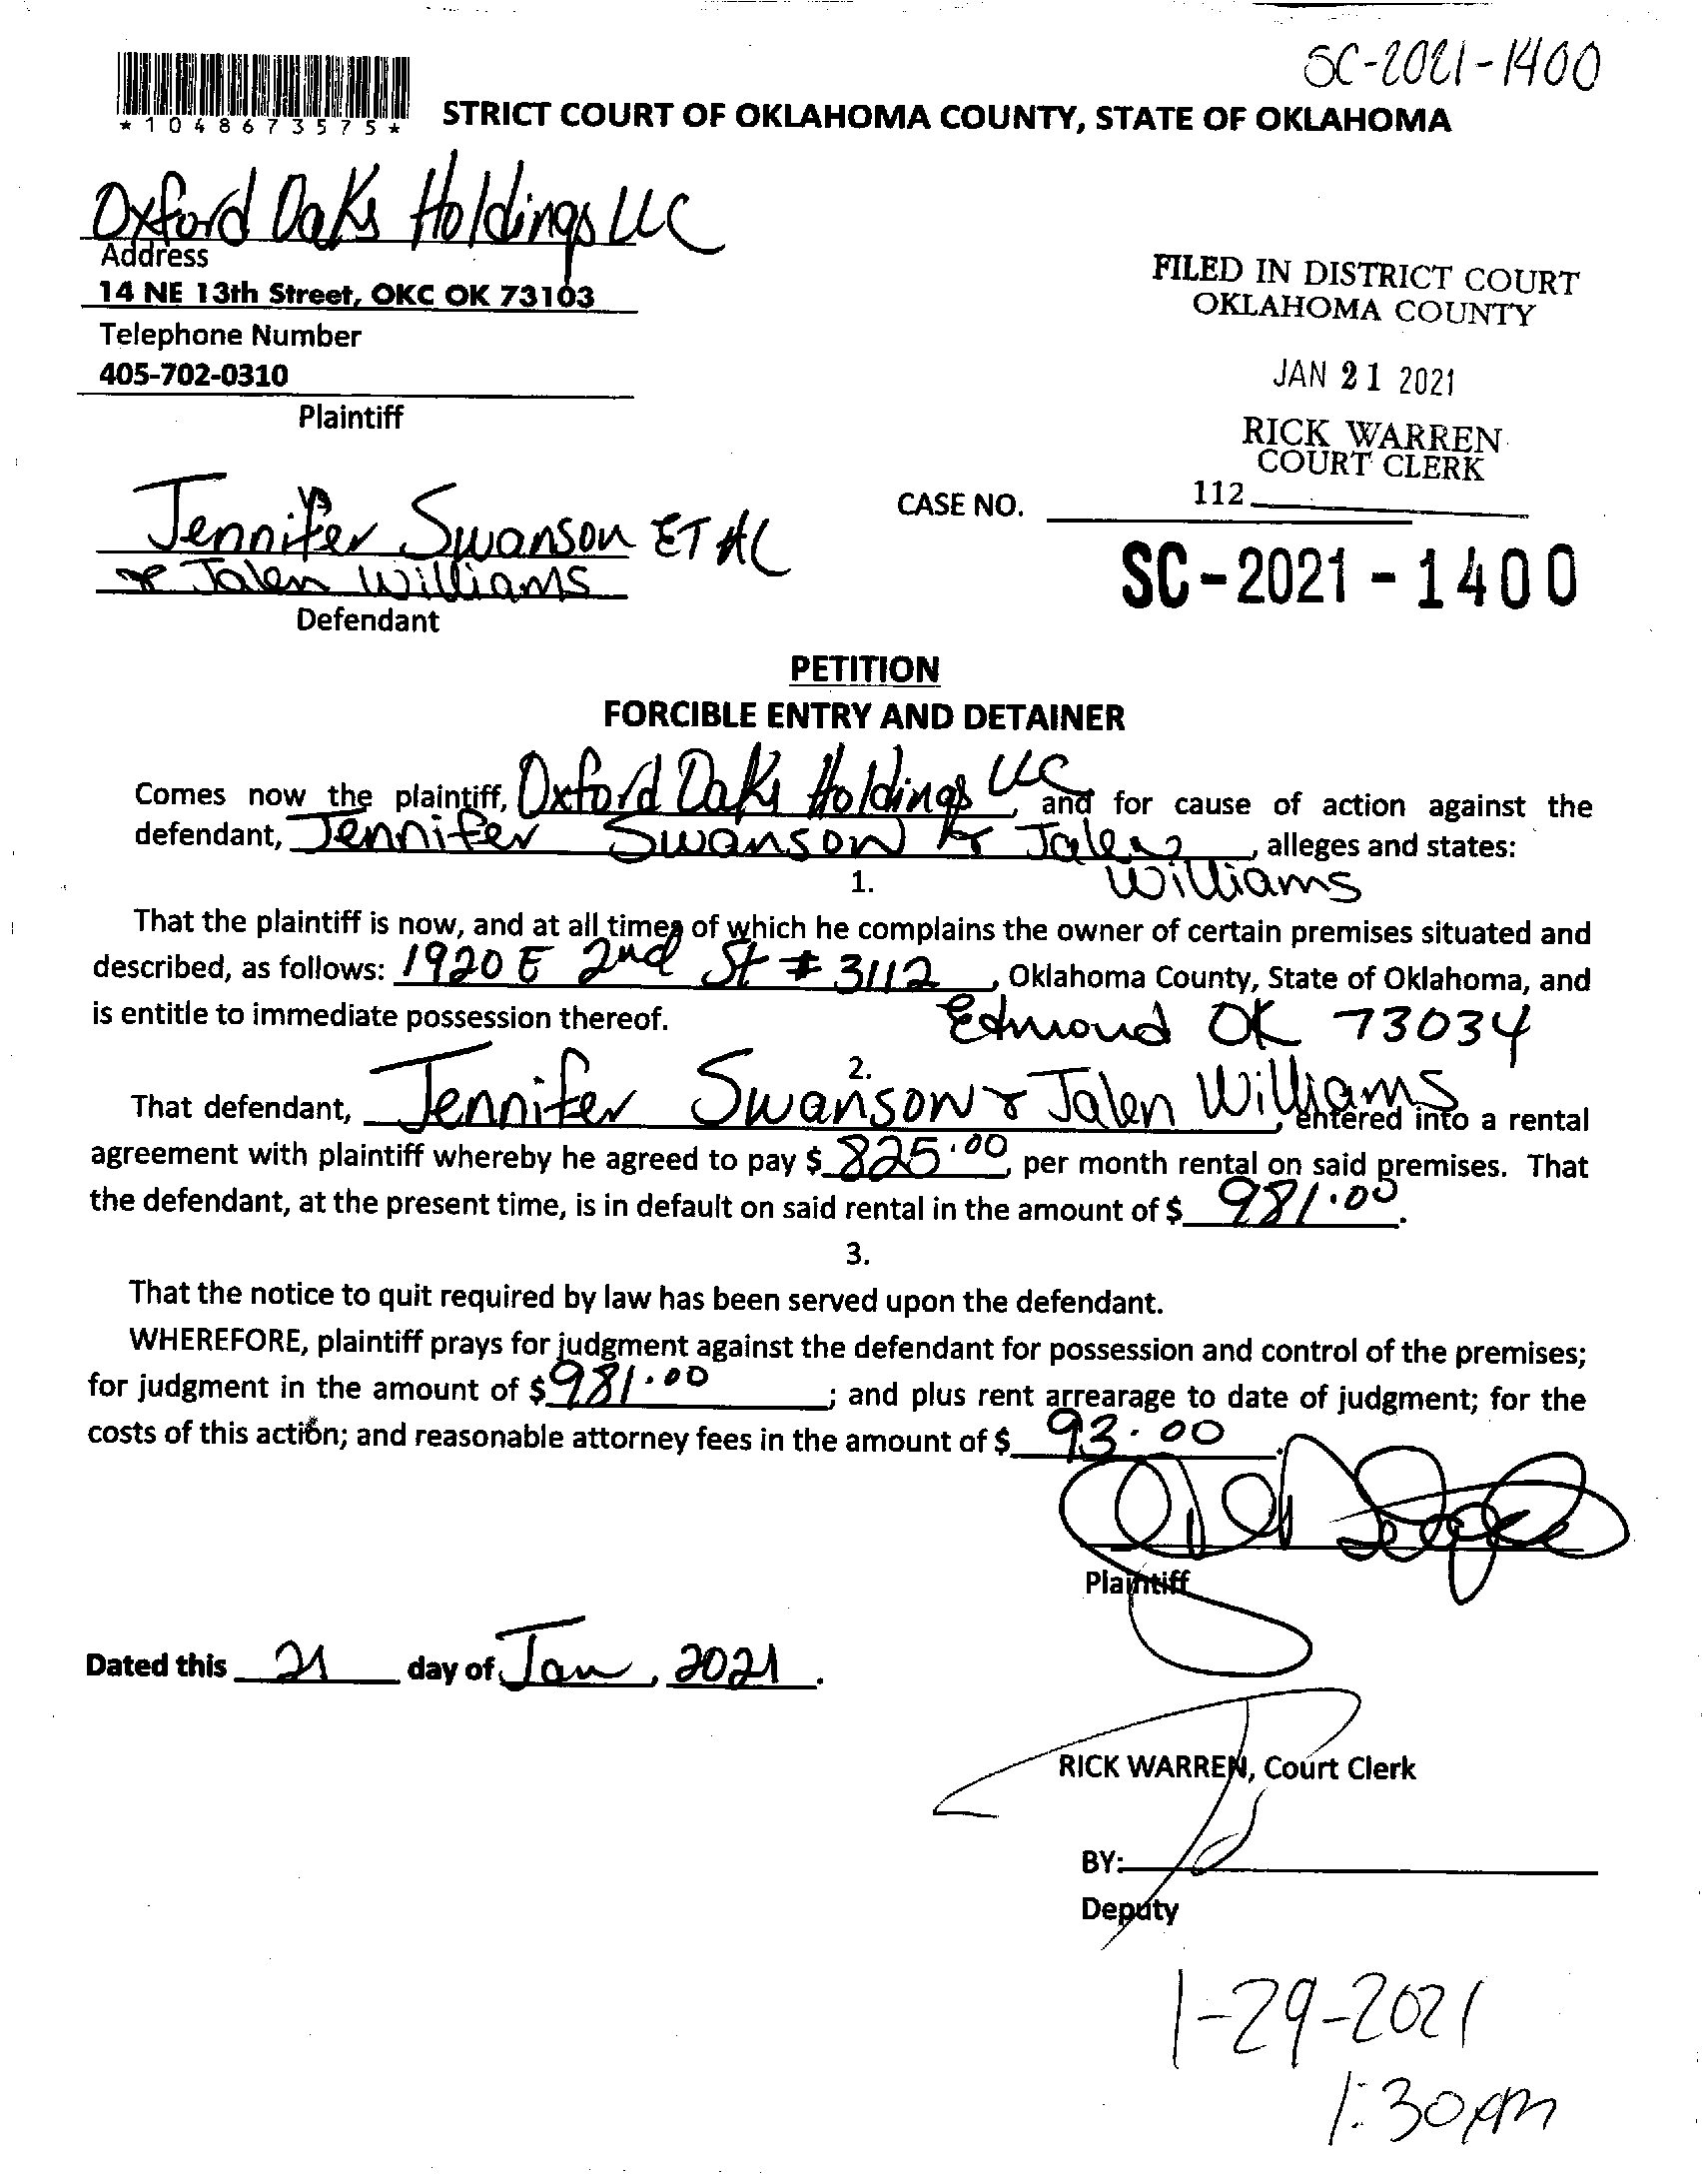 SC-2021-1400
*1048673575*
STRICT COURT OF OKLAHOMA COUNTY, STATE OF OKLAHOMA
Oxford Oaks Holdings LLC
Address
14 NE 13th Street, OKC OK 73103
Telephone Number
405-702-0310
Plaintiff
FILED IN DISTRICT COURT
OKLAHOMA COUNTY
JAN 21 2021
RICK WARREN
COURT CLERK
112
vs
Jennifer Swanson ET AL
& Jalen Williams
Defendant
CASE NO.
SC-2021-1400
PETITION
FORCIBLE ENTRY AND DETAINER
Comes now the plaintiff, Oxford Oaks Holdings LLC, and for cause of action against the
defendant, Jennifer Swanson & Jalen, alleges and states:
Williams
1.
That the plaintiff is now, and at all times of which he complains the owner of certain premises situated and
described, as follows: 1920 E 2nd St # 3112, Oklahoma County, State of Oklahoma, and
is entitle to immediate possession thereof. Edmond OK 73034
2.
That defendant, Jennifer Swanson & Jalen Williams, entered into a rental
agreement with plaintiff whereby he agreed to pay $ 825.00, per month rental on said premises. That
the defendant, at the present time, is in default on said rental in the amount of $ 981.00.
3.
That the notice to quit required by law has been served upon the defendant.
WHEREFORE, plaintiff prays for judgment against the defendant for possession and control of the premises;
for judgment in the amount of $ 981.00; and plus rent arrearage to date of judgment; for the
costs of this action; and reasonable attorney fees in the amount of $ 93.00.
Plaintiff
Dated this 21 day of Jan, 2021.
RICK WARREN, Court Clerk
BY:
Deputy
1-29-2021
1:30pm